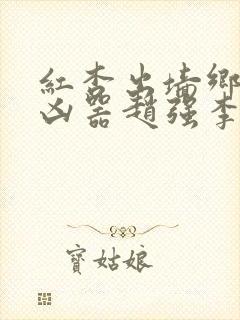 紅杏出墻鄉
凶器趙强李
寶姑娘